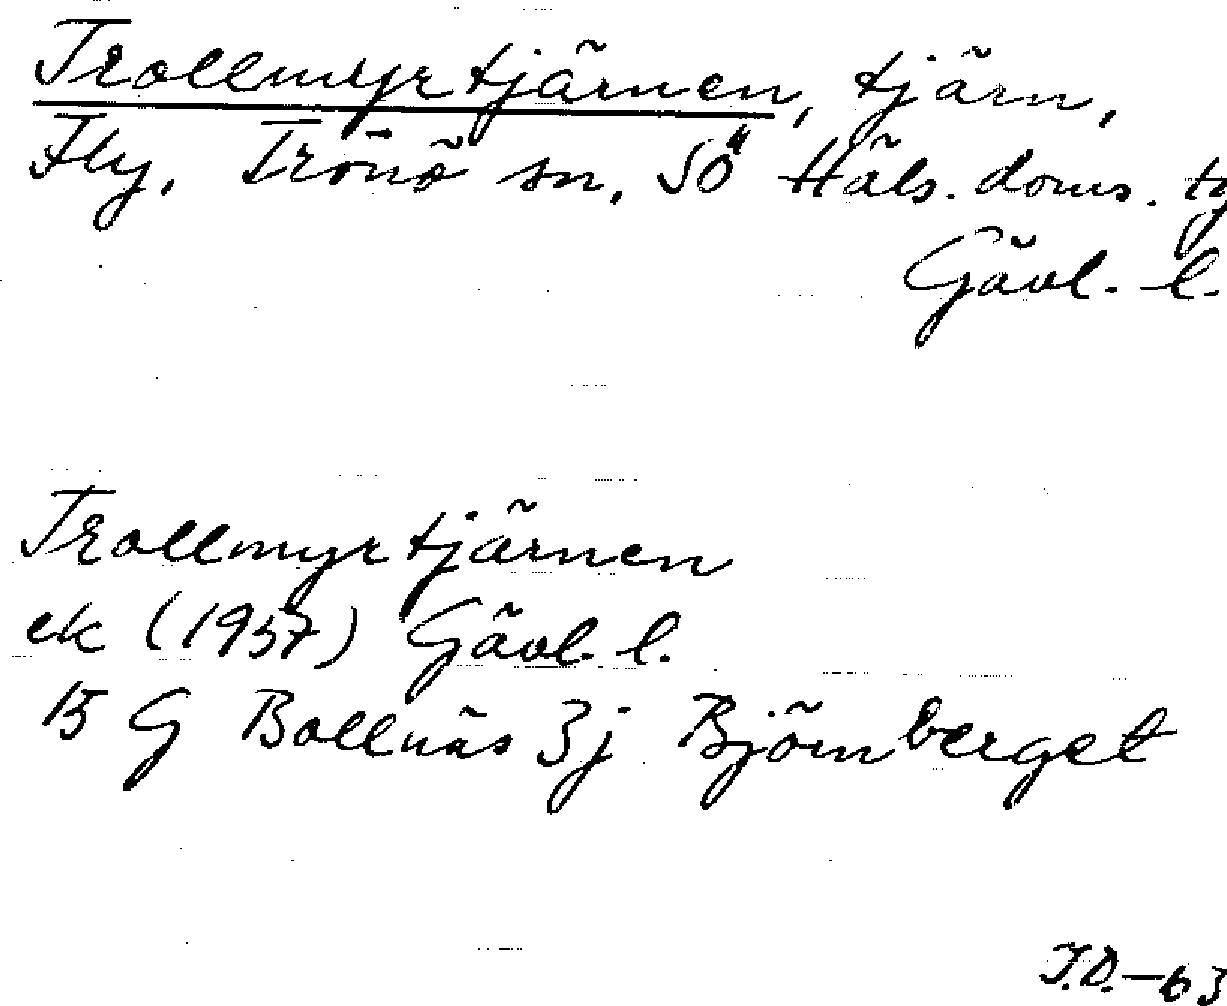 Trollmyrtjärnen, tjärn,
Fly, Trönö sn, SÖ Häls. doms. tg
Gävl. l.
Trollmyrtjärnen
ek (1957) Gävl. l.
15 G Bollnäs 3j Björnberget
T.D.-63